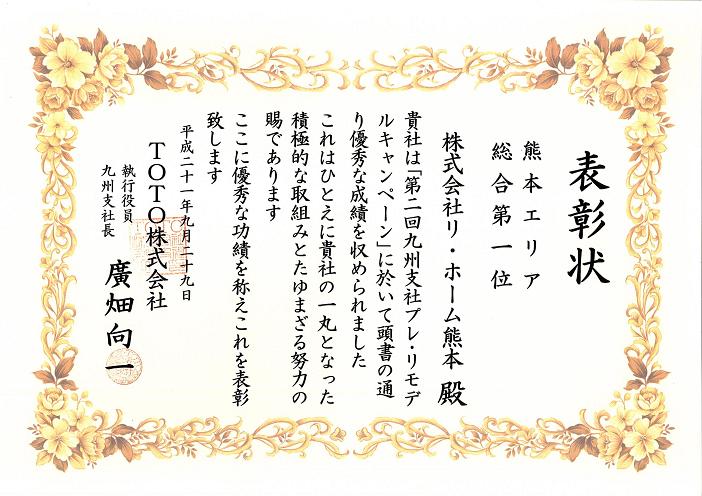 表彰状
熊本エリア
総合第一位
株式会社リ・ホーム熊本 殿
貴社は「第二回九州支社プレ・リモデ
ルキャンペーン」に於いて頭書の通
り優秀な成績を収められました
これはひとえに貴社の一丸となった
積極的な取組みとたゆまざる努力の
賜であります
ここに優秀な功績を称えこれを表彰
致します
平成二十一年九月二十九日
TOTO株式会社
執行役員
九州支社長
廣畑向一